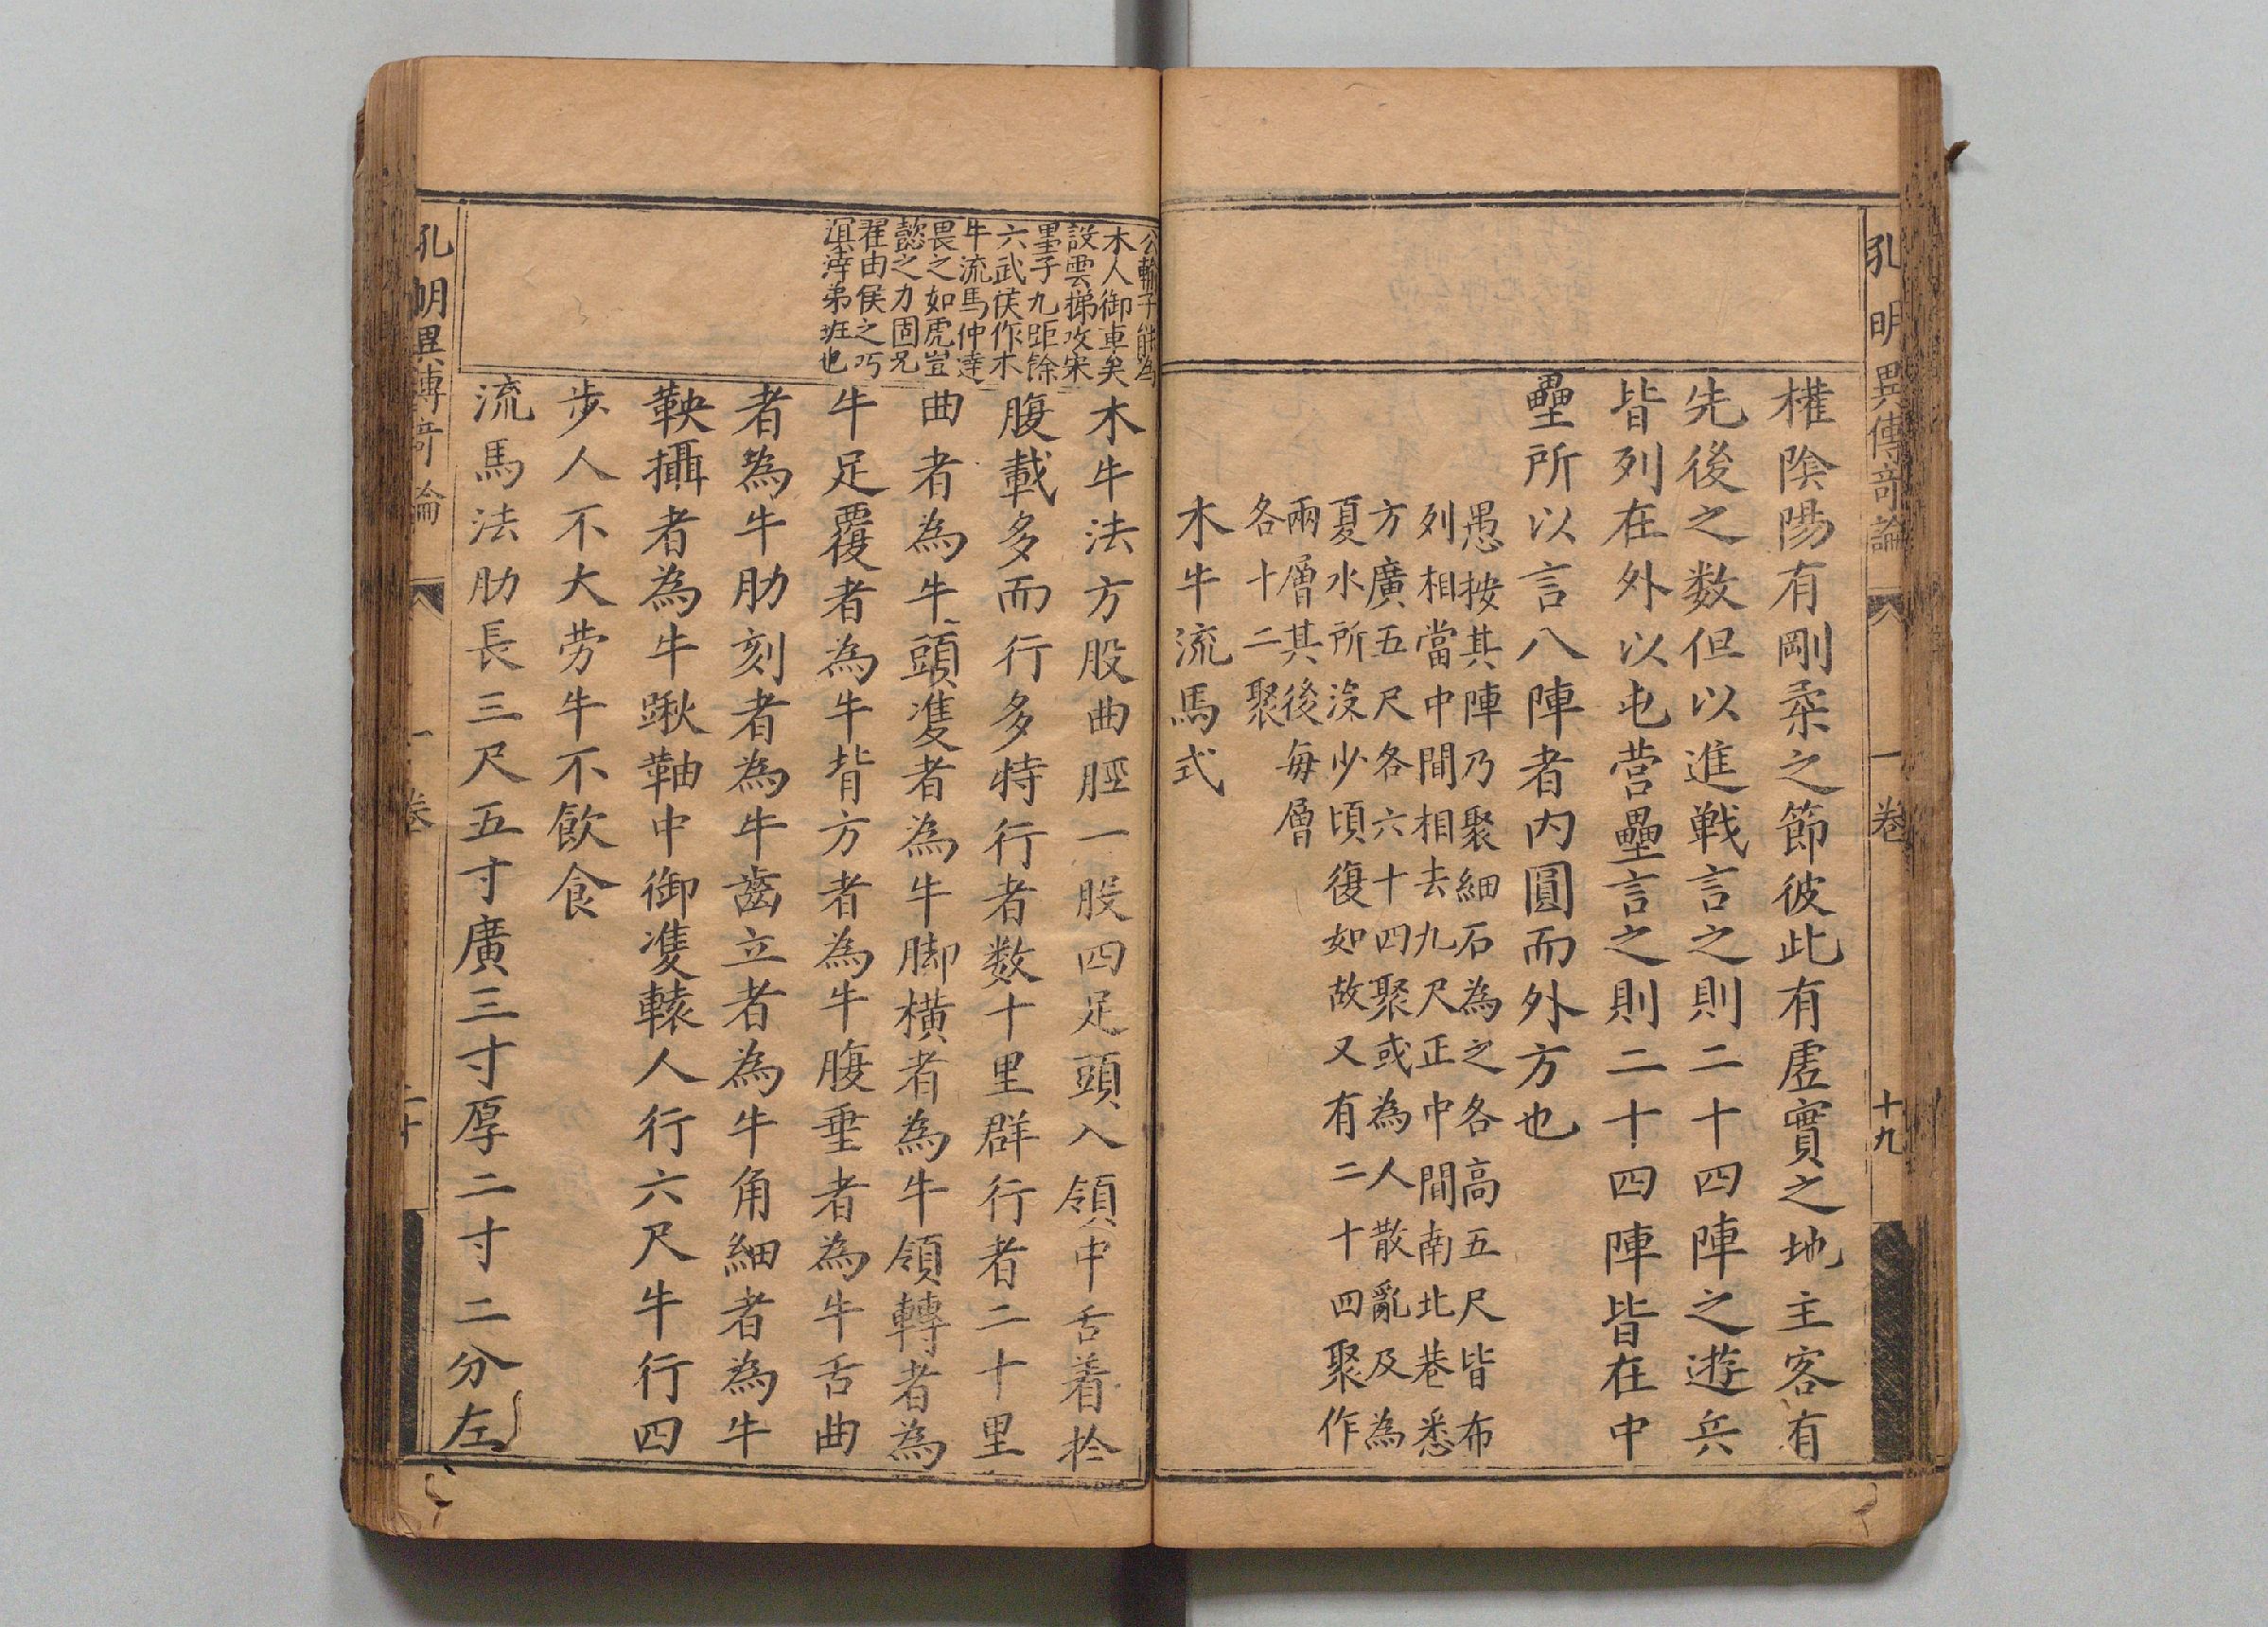 孔明異傳竒論
一卷
十九
權陰陽有剛柔之節彼此有虛實之地主客有
先後之数但以進戦言之則二十四陣之遊兵
皆列在外以屯营壘言之則二十四陣皆在中
壘所以言八陣者内圓而外方也
愚按其陣乃聚細石為之各高五尺皆布
列相當中間相去九尺正中間南北巷悉
方廣五尺各六十四聚或為人散亂及為
夏水所沒少頃復如故又有二十四聚作
兩層其後每層
各十二聚
木牛流馬式
公輸子能為
木人御車矣
設雲梯攻宋
墨子九距餘
六武侯作木
牛流馬仲達
畏之如虎豈
懿之力固兄
翟由侯之巧
溟涬弟班也
木牛法方股曲脛一股四足頭入領中舌着扵
腹載多而行多特行者数十里群行者二十里
曲者為牛頭䨇者為牛脚橫者為牛領轉者為
牛足覆者為牛背方者為牛腹垂者為牛舌曲
者為牛肋刻者為牛齒立者為牛角細者為牛
鞅攝者為牛鞦䩜中御䨇轅人行六尺牛行四
步人不大劳牛不飲食
流馬法肋長三尺五寸廣三寸厚二寸二分左
孔明異傳竒論
一卷
二十